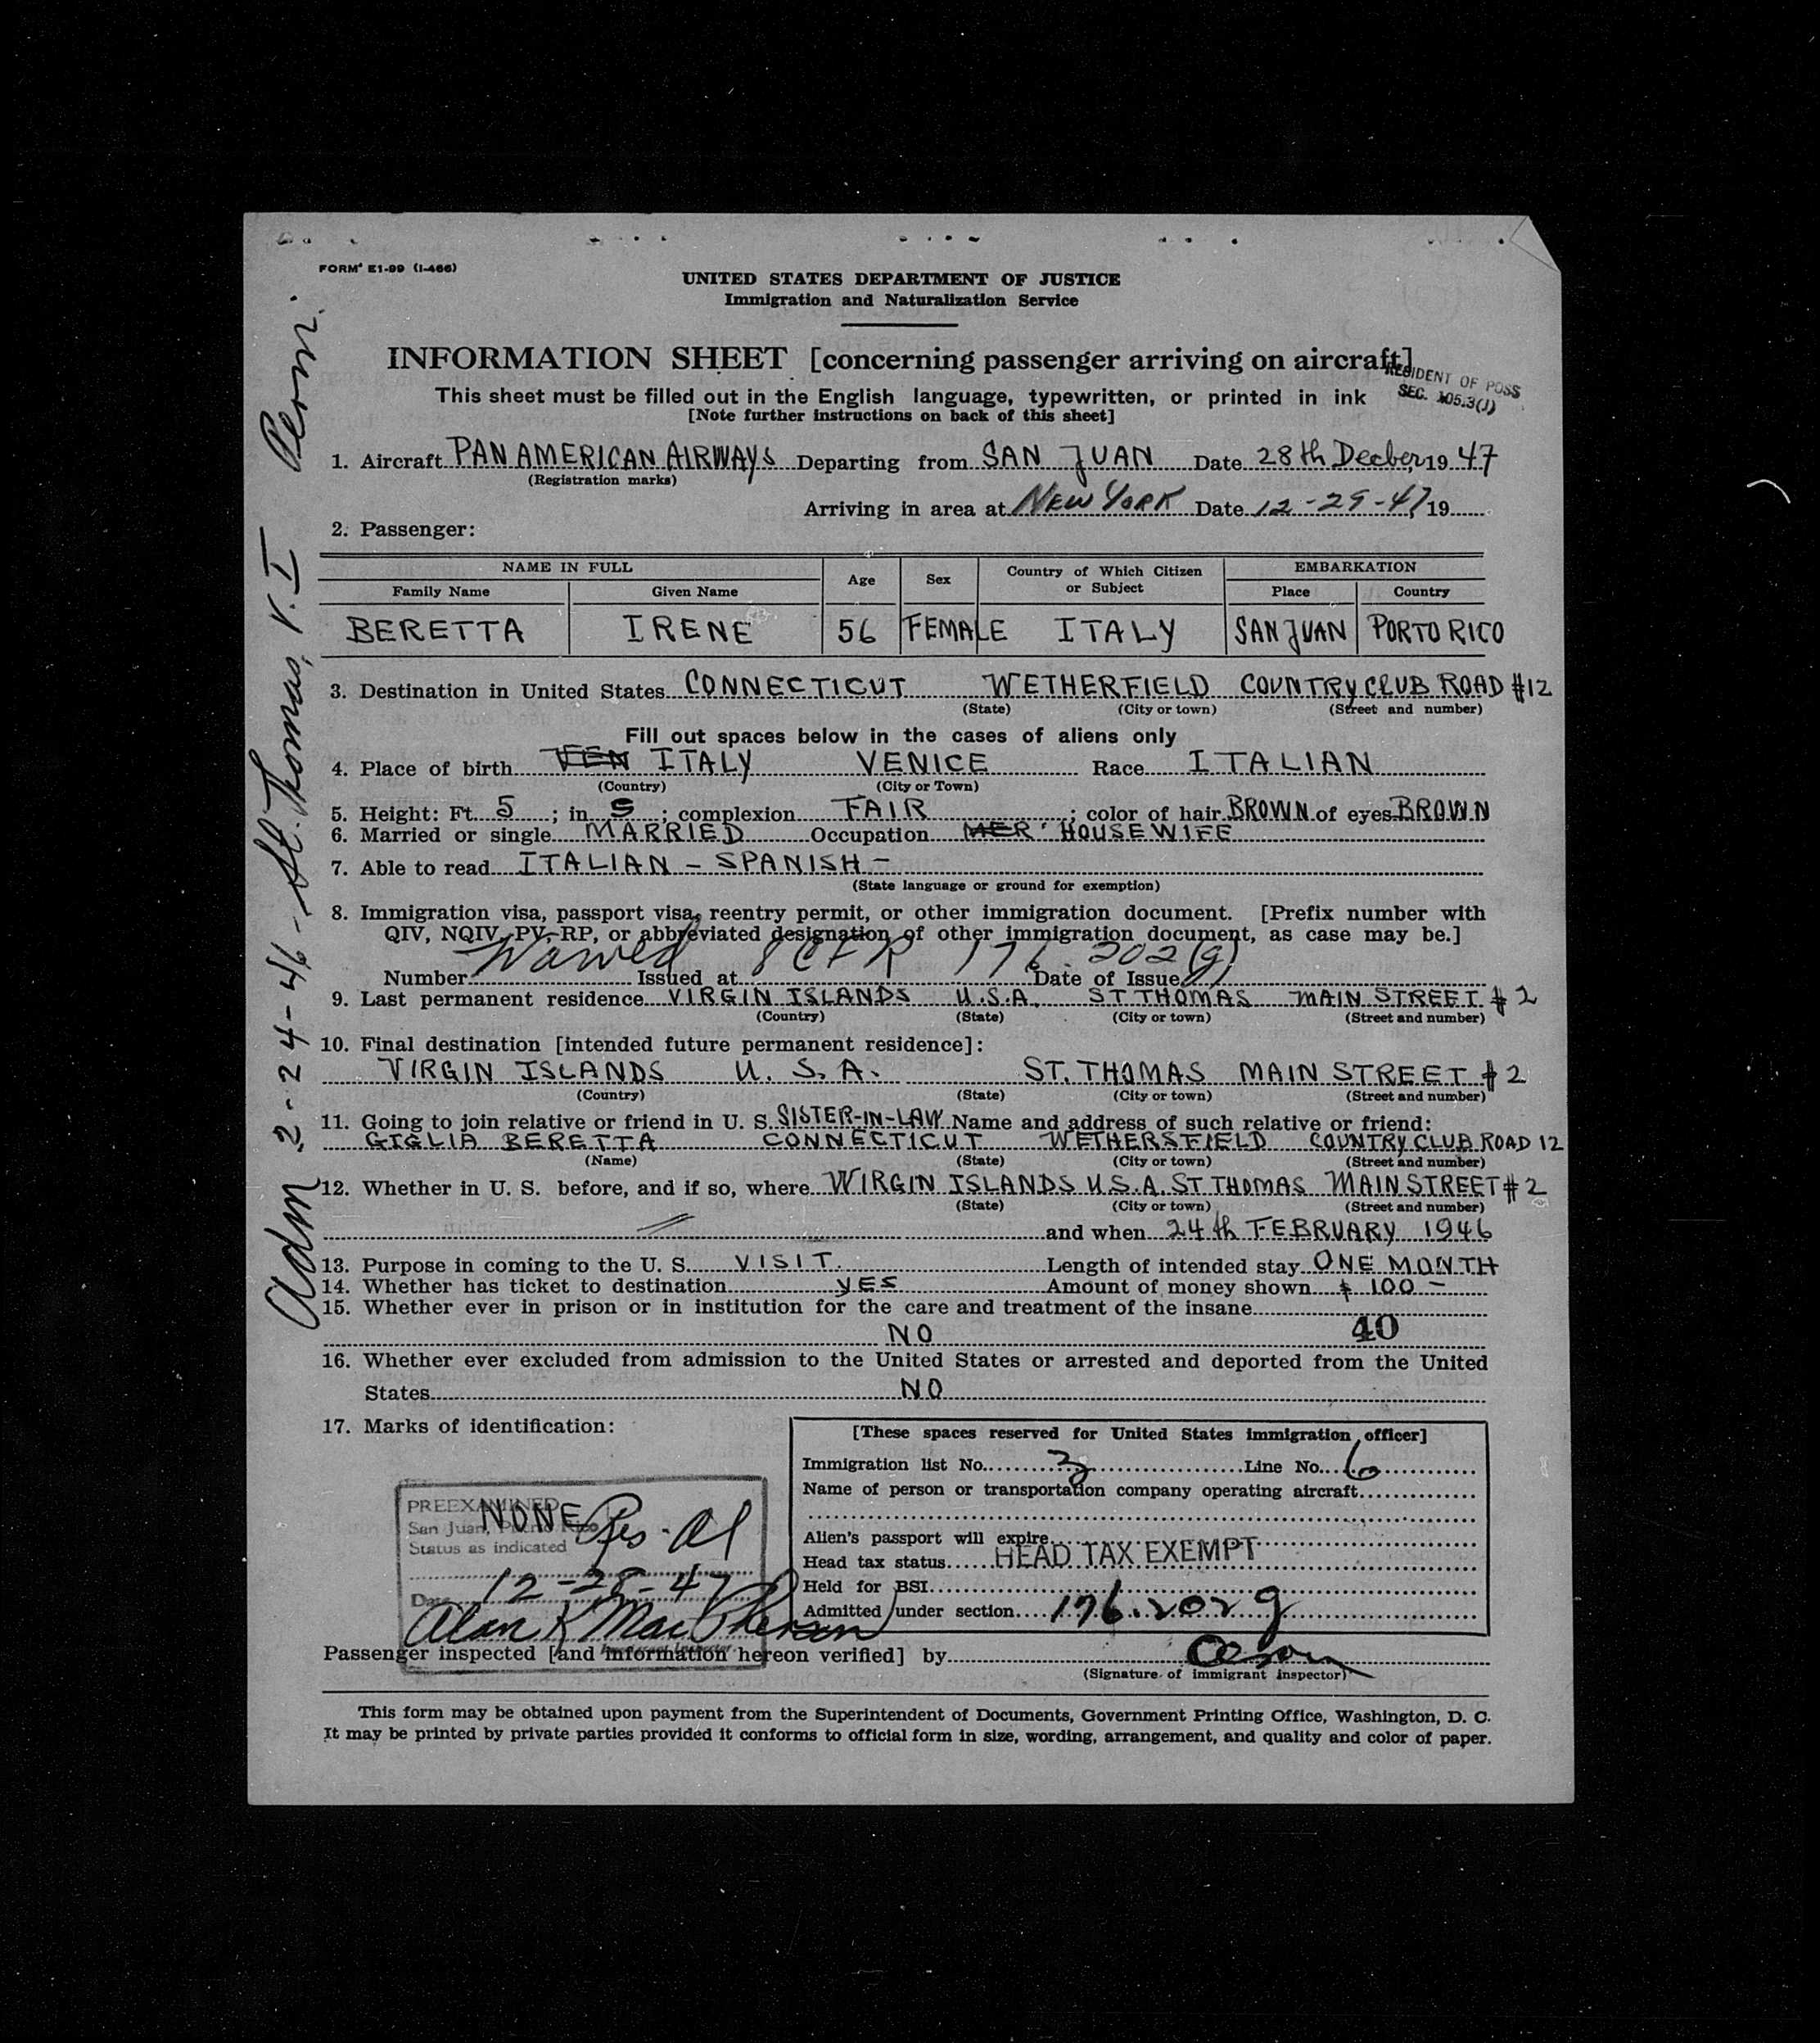 FORM E1-99 (I-466)
UNITED STATES DEPARTMENT OF JUSTICE
Immigration and Naturalization Service
INFORMATION SHEET [concerning passenger arriving on aircraft]
RESIDENT OF POSS
SEC. 105.3(J)
This sheet must be filled out in the English language, typewritten, or printed in ink
[Note further instructions on back of this sheet]
1. Aircraft PAN AMERICAN AIRWAYS Departing from SAN JUAN Date 28th Decber, 1947
(Registration marks)
Arriving in area at NEW YORK Date 12-29-47, 19
2. Passenger:
NAME IN FULL Age Sex Country of Which Citizen or Subject EMBARKATION
Family Name Given Name Place Country
BERETTA IRENE 56 FEMALE ITALY SAN JUAN PORTO RICO
3. Destination in United States CONNECTICUT WETHERFIELD COUNTRY CLUB ROAD #12
(State) (City or town) (Street and number)
Fill out spaces below in the cases of aliens only
4. Place of birth VEN ITALY VENICE Race ITALIAN
(Country) (City or Town)
5. Height: Ft. 5; in. 5; complexion FAIR; color of hair BROWN of eyes BROWN
6. Married or single MARRIED Occupation MER HOUSEWIFE
7. Able to read ITALIAN - SPANISH -
(State language or ground for exemption)
8. Immigration visa, passport visa, reentry permit, or other immigration document. [Prefix number with
QIV, NQIV, PV, RP, or abbreviated designation of other immigration document, as case may be.]
Number Waived Issued at 8 CFR 176.202(g) Date of Issue
9. Last permanent residence VIRGIN ISLANDS U.S.A. ST THOMAS MAIN STREET #2
(Country) (State) (City or town) (Street and number)
10. Final destination [intended future permanent residence]:
VIRGIN ISLANDS U.S.A. ST. THOMAS MAIN STREET #2
(Country) (State) (City or town) (Street and number)
11. Going to join relative or friend in U. S. SISTER-IN-LAW Name and address of such relative or friend:
GIGLIA BERETTA CONNECTICUT WETHERSFIELD COUNTRY CLUB ROAD 12
(Name) (State) (City or town) (Street and number)
12. Whether in U. S. before, and if so, where WIRGIN ISLANDS U.S.A. ST THOMAS MAIN STREET #2
(State) (City or town) (Street and number)
and when 24th FEBRUARY 1946
13. Purpose in coming to the U. S. VISIT. Length of intended stay ONE MONTH
14. Whether has ticket to destination YES Amount of money shown $ 100 -
15. Whether ever in prison or in institution for the care and treatment of the insane
NO 40
16. Whether ever excluded from admission to the United States or arrested and deported from the United
States NO
17. Marks of identification:
NONE
PREEXAMINED
San Juan, Puerto Rico
Status as indicated Res. Al
Date 12-28-47
Alan K MacPherson
Immigrant Inspector
[These spaces reserved for United States immigration officer]
Immigration list No. 3 Line No. 6
Name of person or transportation company operating aircraft
Alien's passport will expire
Head tax status HEAD TAX EXEMPT
Held for BSI
Admitted under section 176.202g
Passenger inspected [and information hereon verified] by
(Signature of immigrant inspector)
This form may be obtained upon payment from the Superintendent of Documents, Government Printing Office, Washington, D. C.
It may be printed by private parties provided it conforms to official form in size, wording, arrangement, and quality and color of paper.
Adm 2-24-46 - St. Thomas, V.I Perm.